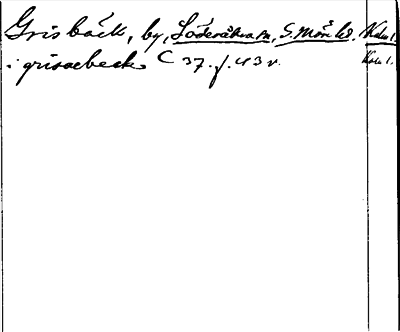 Grisbäck, by, Söderåkra sn, S. Möre hd. Kalm. l.
i grisaebeck C 37. f. 43 v. Kalm. l.